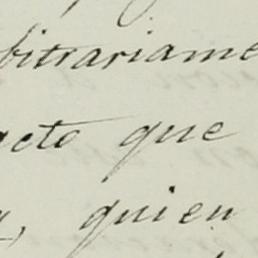 bitrariame
acto que
, quien